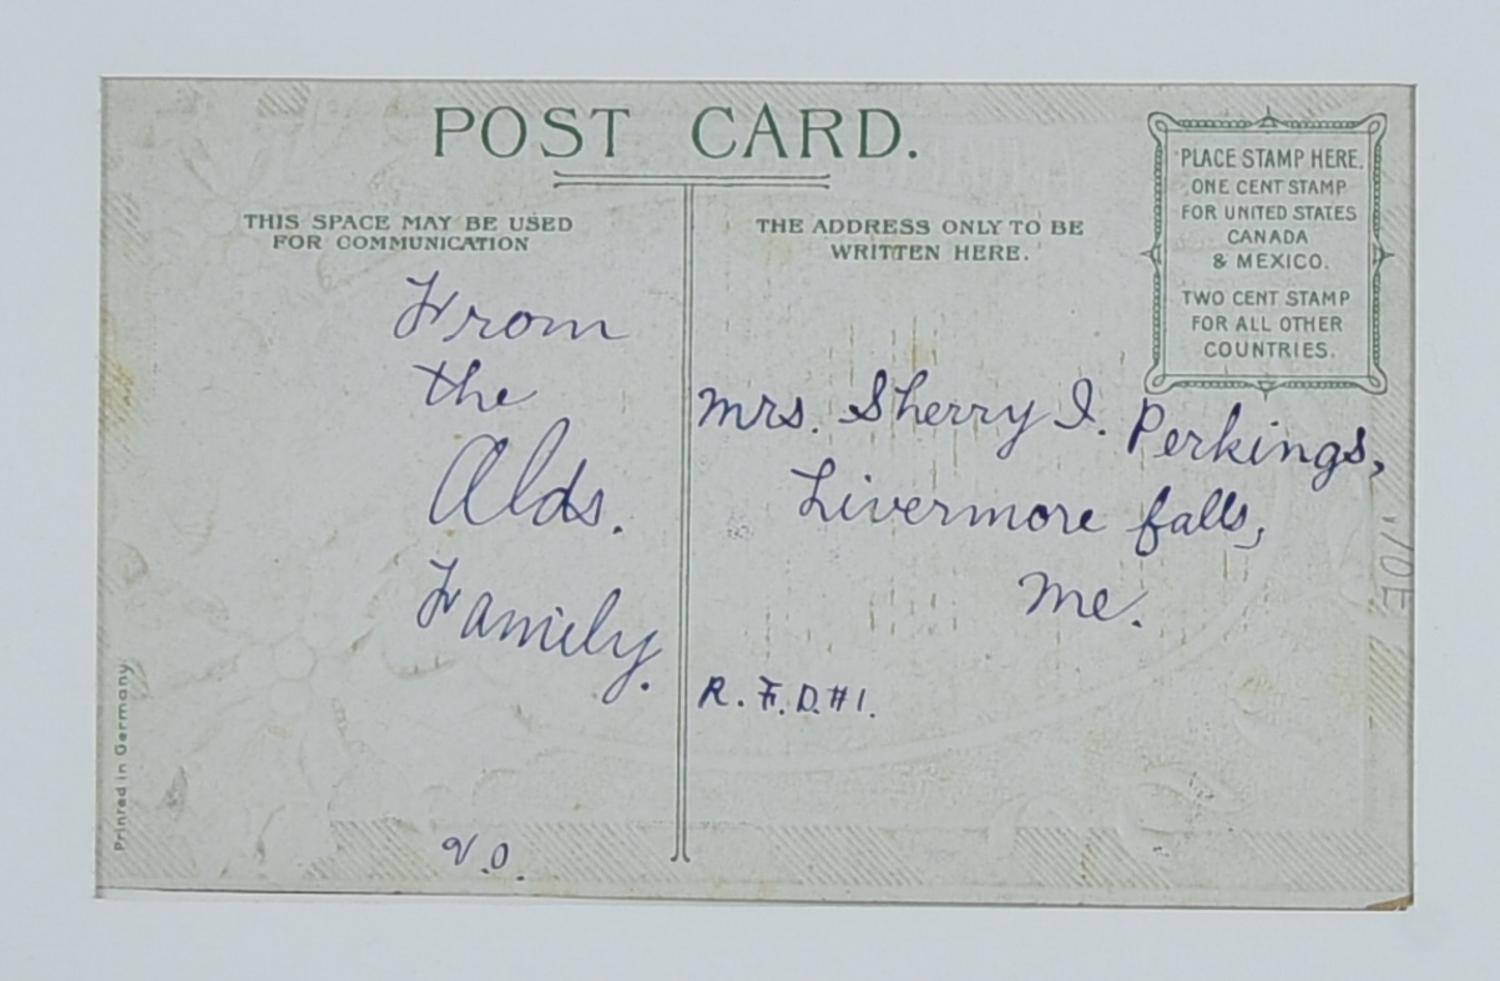 POST CARD.
THIS SPACE MAY BE USED
FOR COMMUNICATION
From
the
Alds.
Family.
V.O.
THE ADDRESS ONLY TO BE
WRITTEN HERE.
PLACE STAMP HERE.
ONE CENT STAMP
FOR UNITED STATES
CANADA
& MEXICO.
TWO CENT STAMP
FOR ALL OTHER
COUNTRIES.
Mrs. Sherry I. Perkings,
Livermore falls,
Me.
R.F.D.#1.
Prinred in Germany